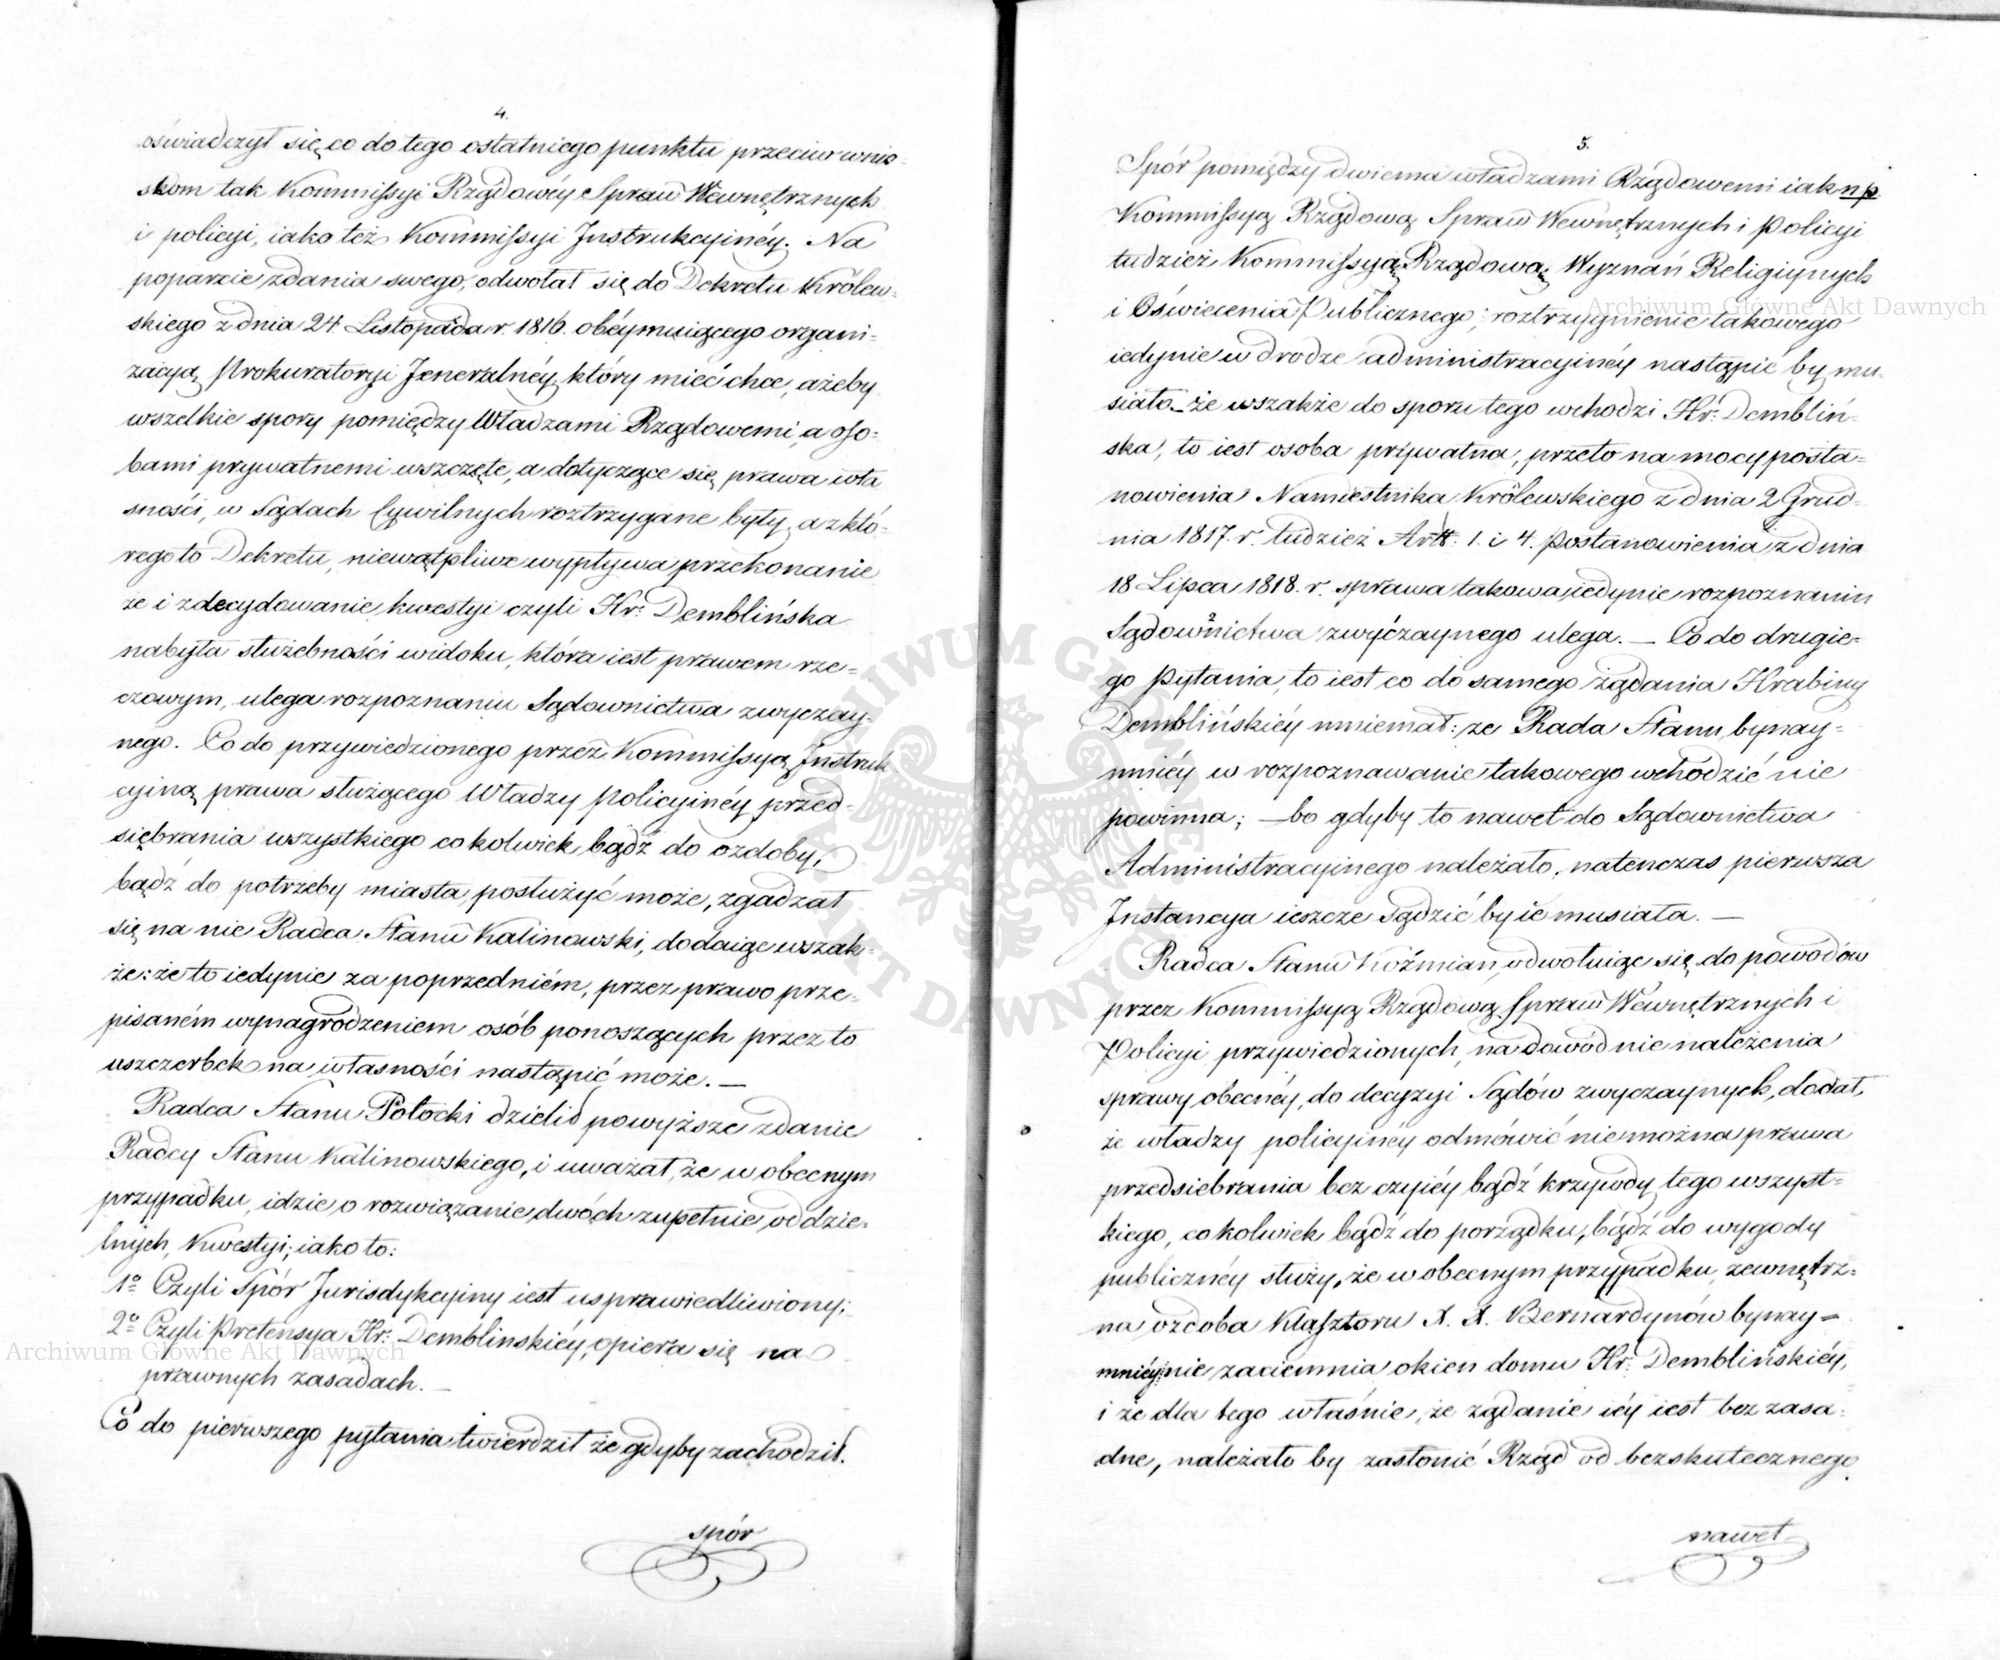 4.
oświadczył się co do tego ostatniego punktu przeciw wnio-
skom tak Kommissyi Rządowéy Spraw Wewnętrznych
i policyi, iako też Kommissyi Instrukcyinéy. Na
poparcie zdania swego, odwołał się do Dekretu Królew-
skiego z dnia 24 Listopada r. 1816. obéymuiącego organi-
zacyą Prokuratoryi Jeneralnéy, który mieć chce, ażeby
wszelkie spory pomiędzy Władzami Rządowemi, a oso-
bami prywatnemi wszczęte, a dotyczące się prawa wła
sności, w Sądach Cywilnych roztrzygane były, a z któ-
rego to Dekretu, niewątpliwe wypływa przekonanie
że i zdecydowanie kwestyi czyli Hr: Demblińska
nabyła służebności widoku, która iest prawem rze-
czowym, ulega rozpoznaniu Sądownictwa zwyczay-
nego. Co do przywiedzionego przez Kommissyą Instruk
cyiną prawa służącego Władzy Policyinéy przed-
siębrania wszystkiego cokolwiek bądź do ozdoby,
bądź do potrzeby miasta posłużyć może, zgadzał
się na nie Radca Stanu Kalinowski, dodaiąc wszak-
że: że to iedynie za poprzedniém, przez prawo prze-
pisaném wynagrodzeniem osób ponoszących przez to
uszczerbek na własności nastąpić może. —
Radca Stanu Potocki dzielił powyższe zdanie
Radcy Stanu Kalinowskiego, i uważał, że w obecnym
przypadku, idzie o rozwiązanie dwóch zupełnie oddzie-
lnych, Kwestyi; iako to:
1o Czyli Spór Jurisdykcyiny iest usprawiedliwiony;
2o Czyli Pretensya Hr: Demblinskiéy, opiera się na
prawnych zasadach. —
Co do pierwszego pytania twierdził że gdyby zachodził.
spór
5.
Spór pomiędzy dwiema władzami Rządowemi iak np.
Kommissyą Rządową Spraw Wewnętrznych i Policyi
tudzież Kommissyą Rządową Wyznań Religiynych
i Oświecenia Publicznego; roztrzygnienie takowego
iedynie w drodze administracyinéy nastąpić by mu-
siało — że wszakże do sporu tego wchodzi Hr: Demblin-
ska, to iest osoba prywatna, przeto na mocy posta-
nowienia Namiestnika Królewskiego z dnia 2 Grud-
nia 1817. r. tudzież Artt: 1. i 4. Postanowienia z dnia
18 Lipca 1818. r. sprawa takowa iedynie rozpoznaniu
Sądownictwa zwyczaynego ulega. — Co do drugie-
go Pytania, to iest co do samego żądania Hrabiny
Demblińskiéy mniemał: że Rada Stanu, bynay-
mniéy w rozpoznawanie takowego wchódzić nie
powinna; — bo gdyby to nawet do Sądownictwa
Administracyinego należało, natenczas pierwsza
Instancya ieszcze Sądzić by ie musiała. —
Radca Stanu Koźmian, odwołuiąc się do powodów
przez Kommissyą Rządową Spraw Wewnętrznych i
Policyi przywiedzionych, na dowód nie należenia
sprawy obecnéy, do decyzyi Sądów zwyczaynych, dodał,
że władzy policyinéy odmówić niemożna prawa
przedsiebrania bez czyiéy bądź krzywdy tego wszyst-
kiego, cokolwiek bądź do porządku, bądź do wygody
publicznéy służy, że w obecnym przypadku, zewnętrz-
na ozdoba Klasztoru X. X. Bernardynów bynay-
mniéy nie zaciemnia okien domu Hr: Demblińskiéy,
i że dla tego właśnie, że żądanie iéy iest bez zasa-
dne, należało by zasłonić Rząd od bezskutecznego
nawet
Archiwum Główne Akt Dawnych
Archiwum Główne Akt Dawnych
ARCHIWUM GŁÓWNE AKT DAWNYCH